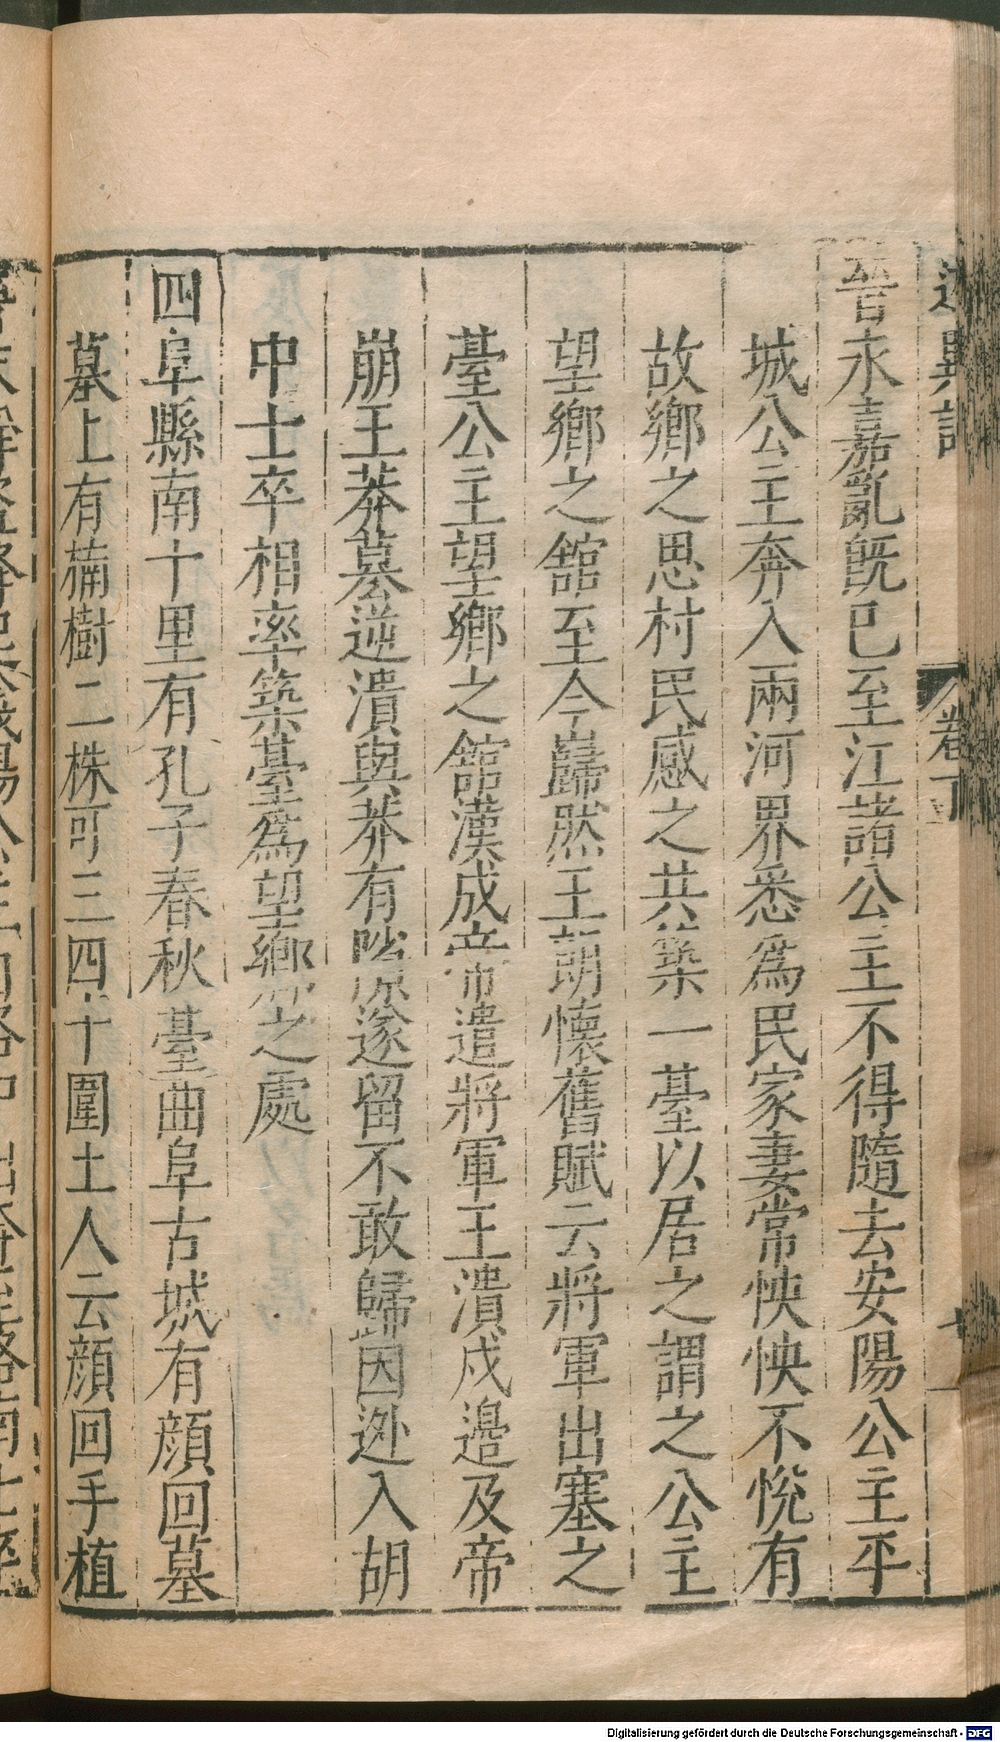 述異記 卷下 十
晉永嘉亂旣巳至江諸公主不得隨去安陽公主平
城公主奔入兩河界悉爲民家妻常怏怏不悅有
故鄉之思村民感之共築一臺以居之謂之公主
望鄉之舘至今巋然王朗懷舊賦云將軍出塞之
臺公主望鄉之舘漢成帝遣將軍王潰戍邉及帝
崩王莽墓逆潰與莽有隙遂留不敢歸因迯入胡
中士卒相率築臺爲望鄉之處
四阜縣南十里有孔子春秋臺曲阜古城有顔回墓
墓上有楠樹二株可三四十圍土人云顔回手植
Digitalisierung gefördert durch die Deutsche Forschungsgemeinschaft - DFG